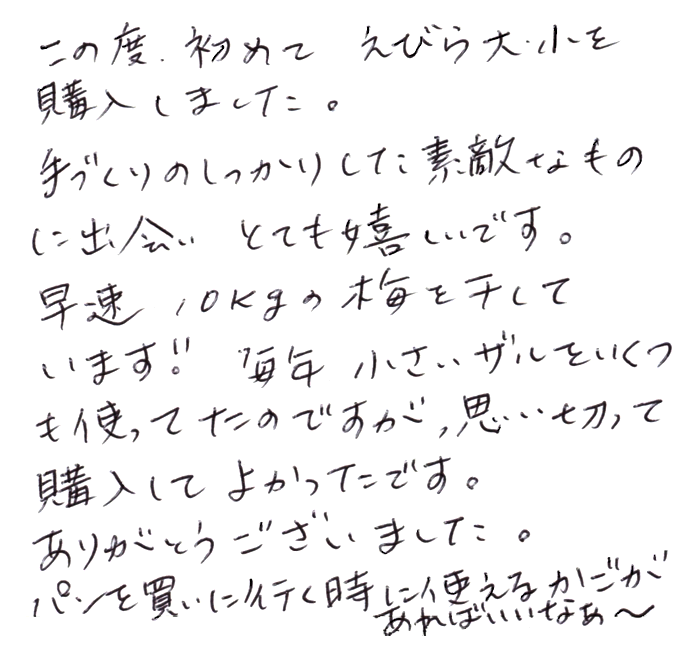 この度.初めて えびら大・小を
購入しました。
手づくりのしっかりした素敵なもの
に出会い とても嬉しいです。
早速 10Kgの梅を干して
います!! 毎年 小さいザルをいくつ
も使ってたのですが,思い切って
購入して よかったです。
ありがとうございました。
パンを買いに行く時に使えるかごが
あればいいなぁ〜